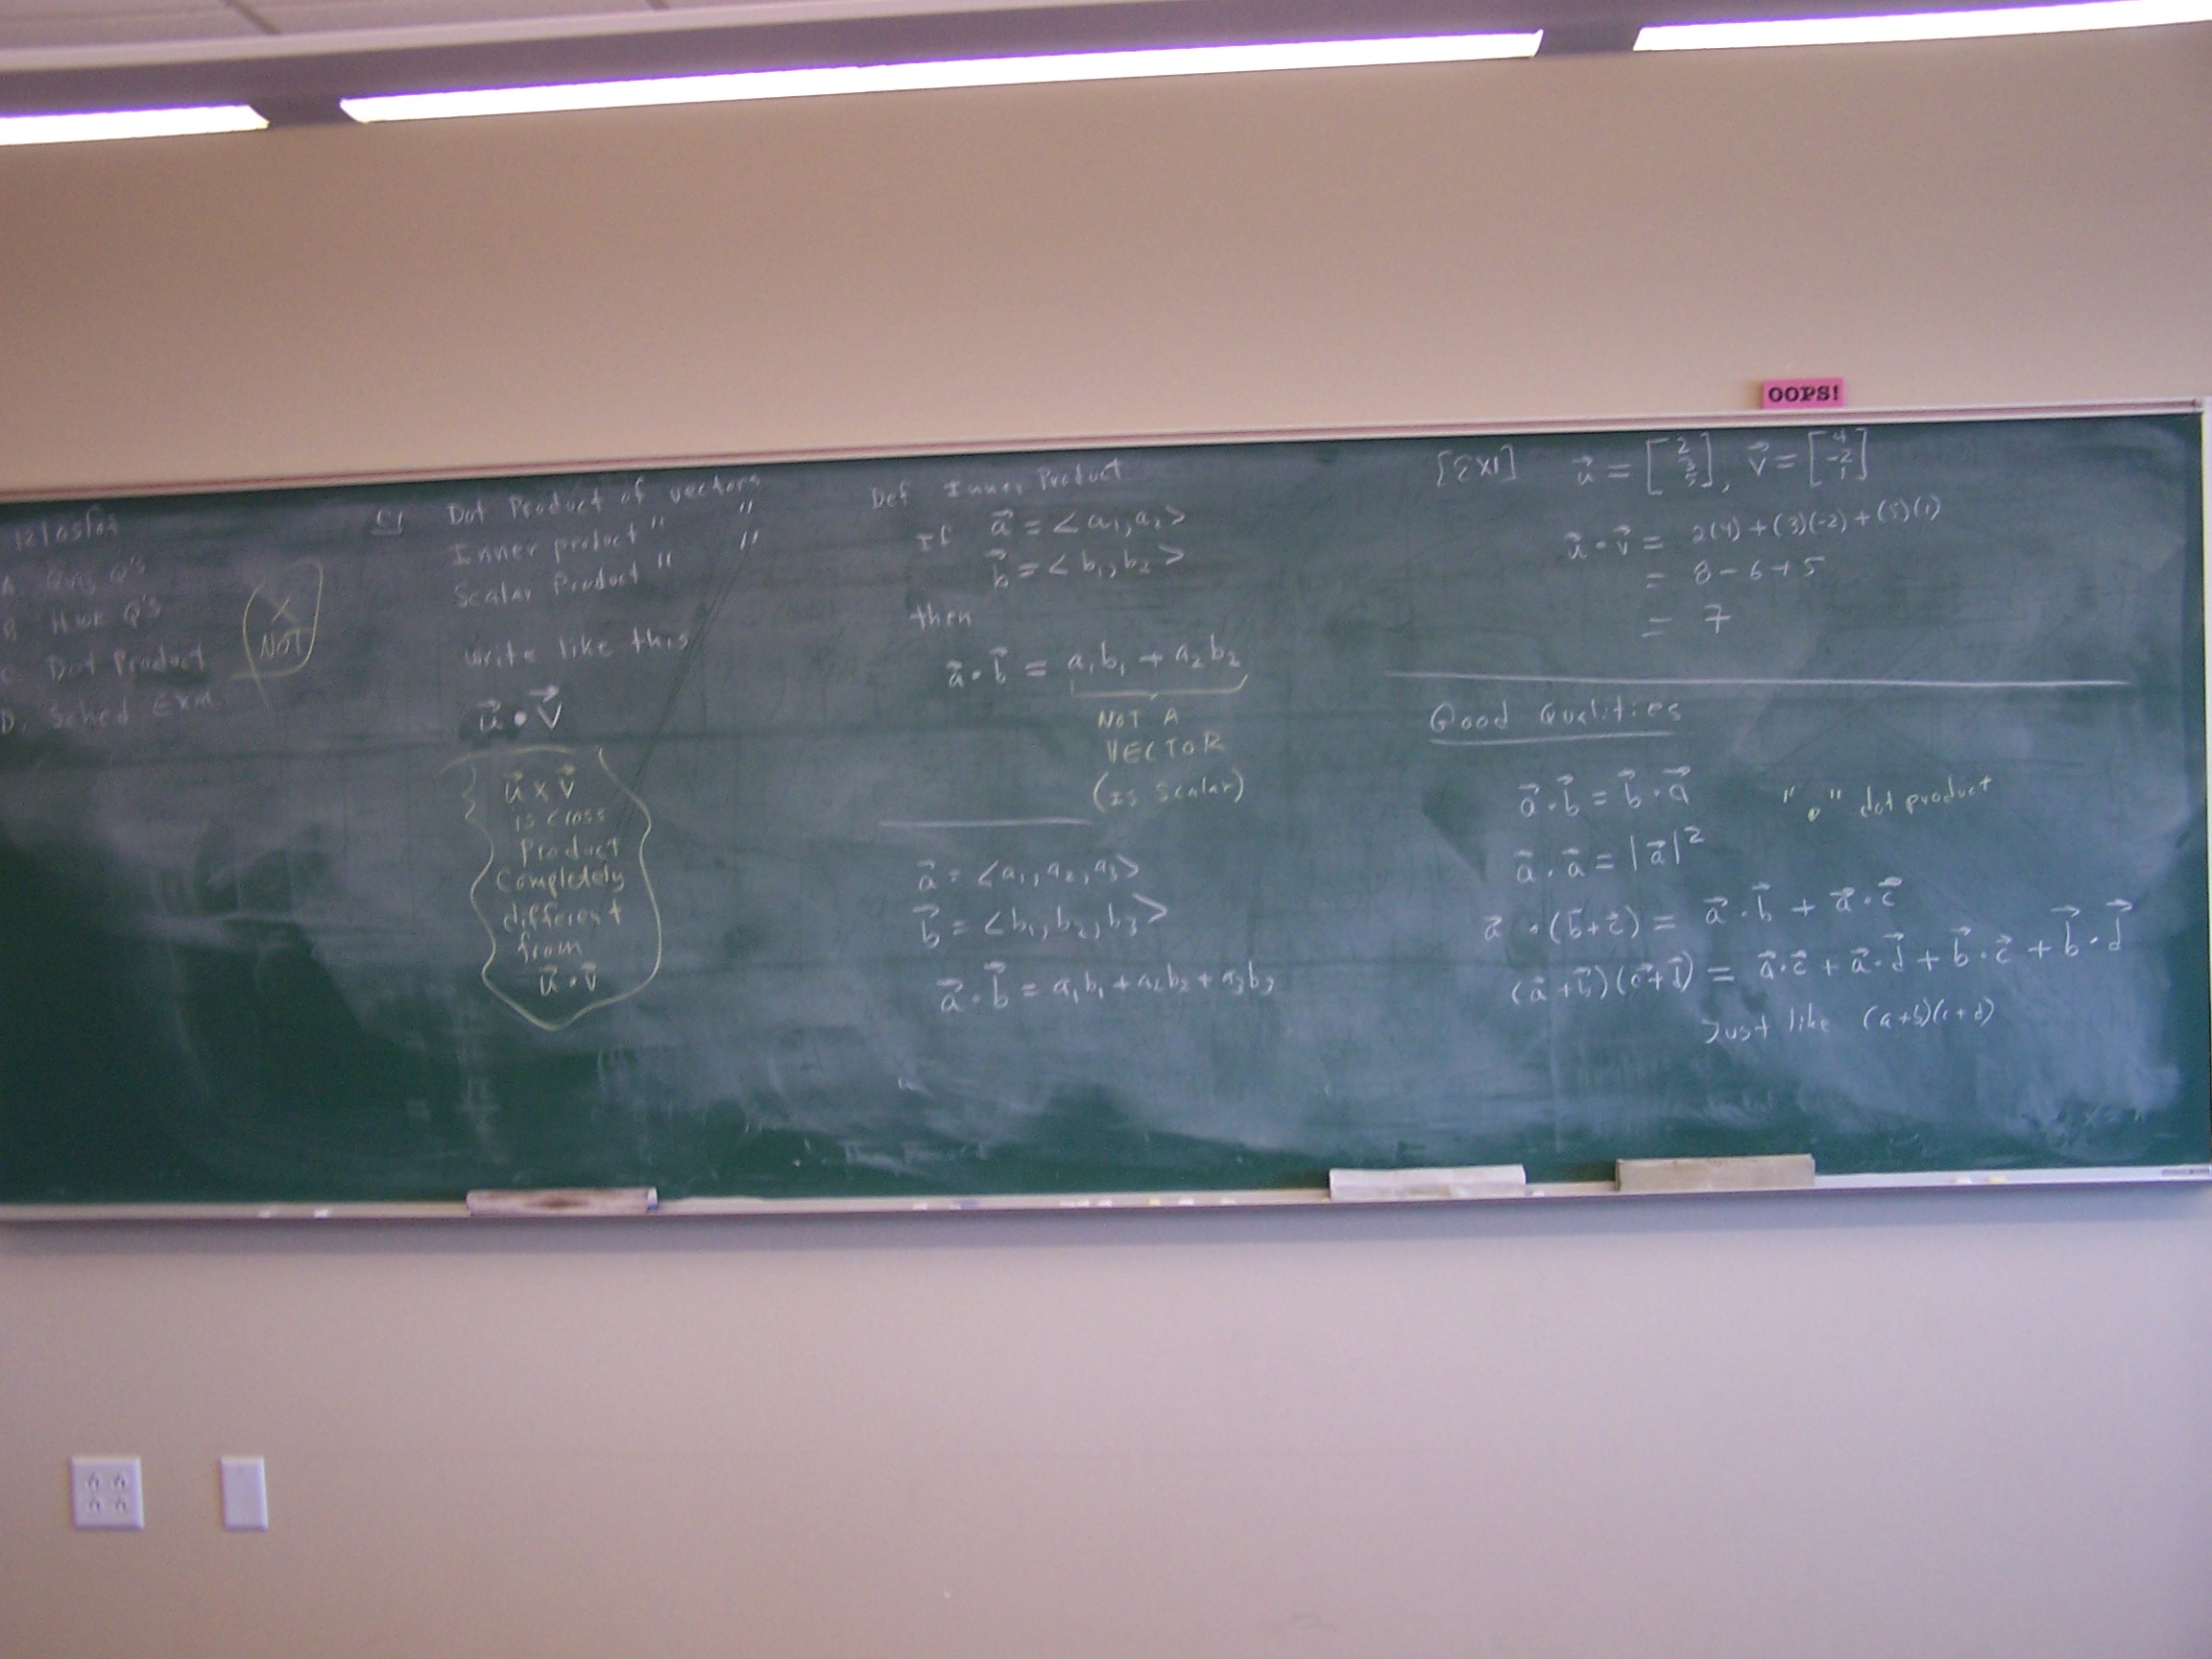 OOPS!
12/05/0
A. Quiz Q's
B. Hwk Q's
C. Dot Product
D. Sched Exm
X
NOT
C)
Dot Product of vectors
Inner product " "
Scalar Product " "
write like this
u⃗ • v⃗
u⃗ × v⃗
is cross
Product
Completely
different
from
u⃗ • v⃗
Def Inner Product
If a⃗ = <a₁, a₂>
b⃗ = <b₁, b₂>
then
a⃗ • b⃗ = a₁b₁ + a₂b₂
NOT A
VECTOR
(IS Scalar)
a⃗ = <a₁, a₂, a₃>
b⃗ = <b₁, b₂, b₃>
a⃗ • b⃗ = a₁b₁ + a₂b₂ + a₃b₃
[EX1] u⃗ = [2 3 5], v⃗ = [4 -2 1]
u⃗ • v⃗ = 2(4) + (3)(-2) + (5)(1)
= 8 - 6 + 5
= 7
Good Qualities
a⃗ • b⃗ = b⃗ • a⃗
"•" dot product
a⃗ • a⃗ = |a⃗|²
a⃗ • (b⃗ + c⃗) = a⃗ • b⃗ + a⃗ • c⃗
(a⃗ + b⃗)(c⃗ + d⃗) = a⃗ • c⃗ + a⃗ • d⃗ + b⃗ • c⃗ + b⃗ • d⃗
Just like (a+b)(c+d)